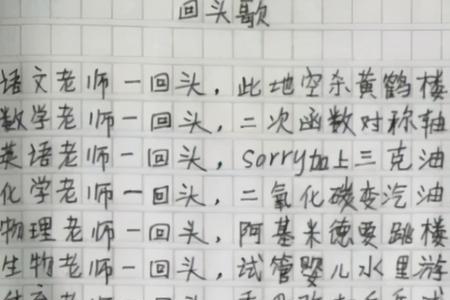 回头歌
语文老师一回头，此地空杀黄鹤楼
数学老师一回头，二次函数对称轴
英语老师一回头，sorry加上三克油
化学老师一回头，二氧化碳变汽油
物理老师一回头，阿基米德要跳楼
生物老师一回头，试管婴儿水里游